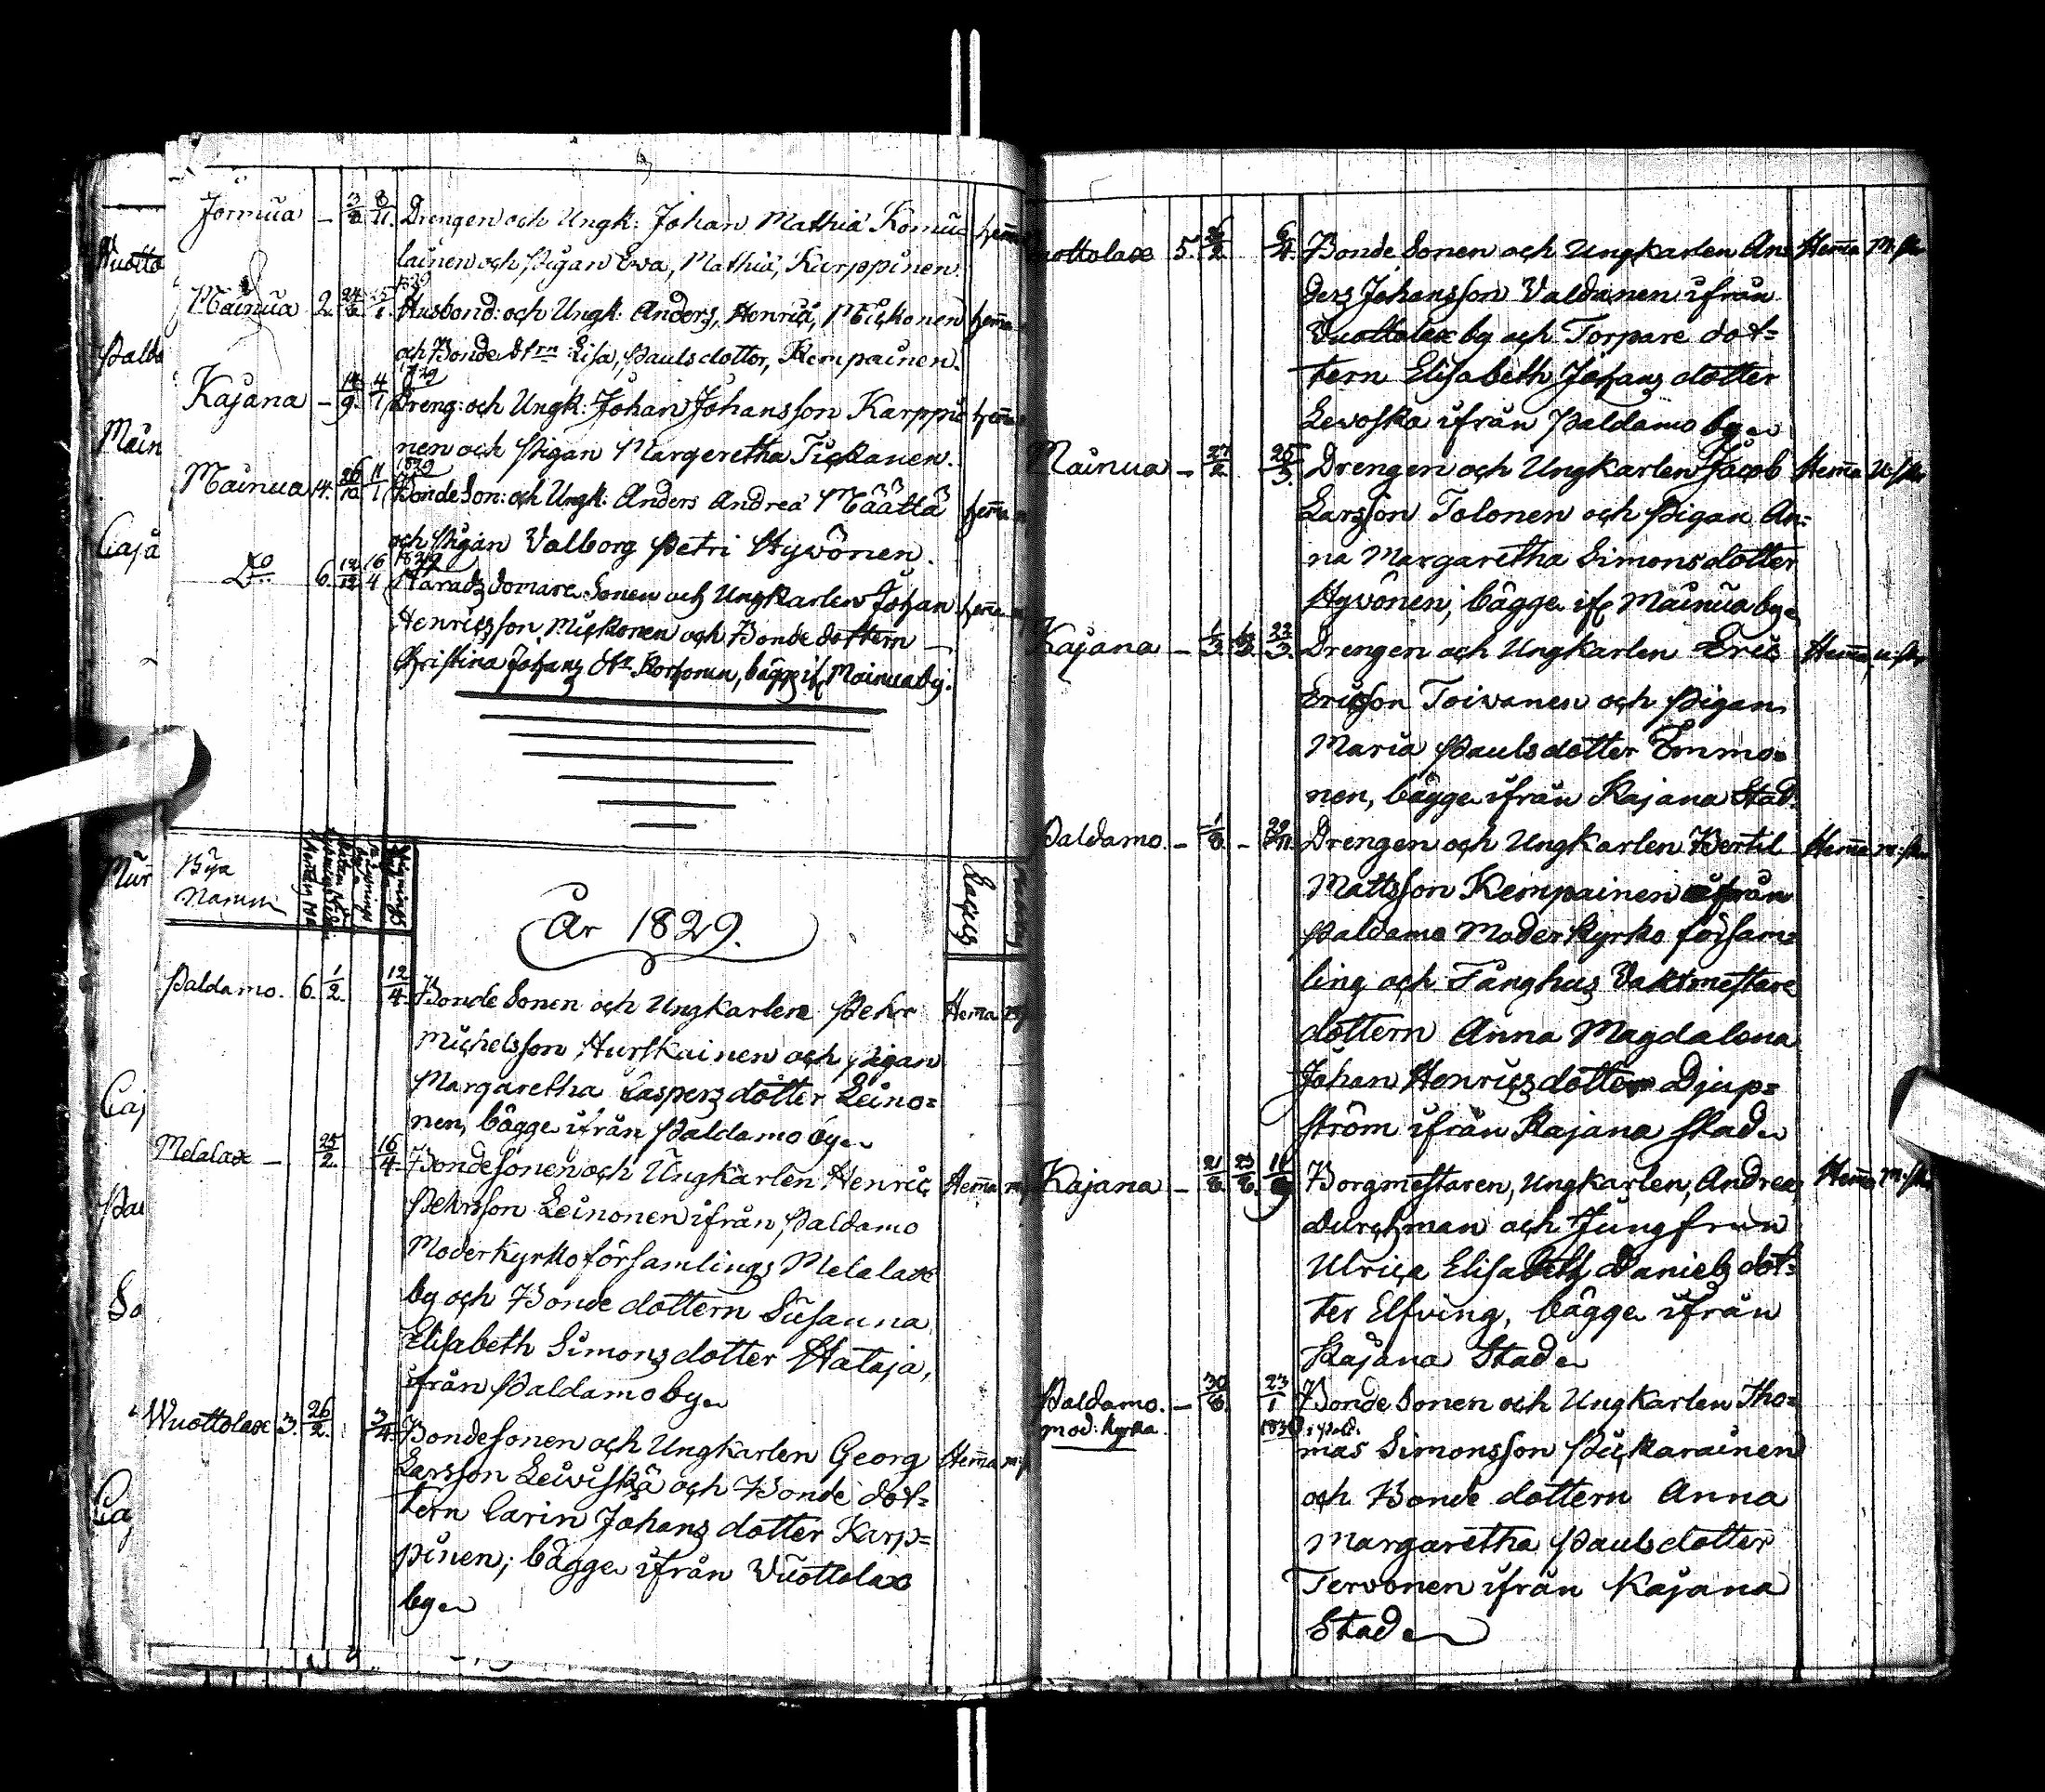 Jormua – 3/8 8/11. Drengen och Ungk: Johan Mathiæ Komu
lainen och Pigan Ewa, Mathiæ, Karppinen.
1829
Mainua 2. Husbond: och Ungk: Anders, Henrici, Mickonen
och Bonde dtrn Lisa, Paulsdotter, Kempainen.
1829
Kajana – 14/9. 4/1 Dreng: och Ungk: Johan Johansson Karppi
nen och Pigan Margeretha Tickanen.
1829
Mainua 14. 26/10 11/1 Bonde Son: och Ungk: Anders Andreæ Määttä
och Pigan Valborg Petri Hyvönen.
1829
Do 6. 12/12 16/4 Häradz domare Sonen och Ungkarlen Johan
Henricsson Mickonen och Bonde dottern
Christina Johans dtr Korhonen, bägge if Mainua by.
Bya
Namn
År 1829.
Paldamo. 6. 1/2. 12/4. Bonde Sonen och Ungkarlen Pehr Hema
Michelsson Hurskainen och pigan
Margaretha Caspersdotter Leino=
nen, bägge ifrån Paldamo by
Melalax – 25/2. 16/4. Bondesonen och Ungkarlen Henric Hema
Pehrsson Leinonen ifrån Paldamo
Moderkyrko församlings Melalax
by och Bonde dottern Susanna
Elisabeth Simonsdotter Hataja,
ifrån Paldamo by
Wuottolax 3. 26/2. 3/4. Bondesonen och Ungkarlen Georg Hema
Larsson Leiviskä och Bonde dot=
tern Carin Johansdotter Karp=
pinen; bägge ifrån Vuottolax
by
uottolax 5. 6/4. Bonde Sonen och Ungkarlen An= Hema
ders Johansson Valdanen ifrån
Vuottolax by och Torpare dot=
tern Elisabeth Johans dotter
Levoska ifrån Paldamo by
Mainua – 27/2. 25/3. Drengen och Ungkarlen Jacob Hema
Larsson Tolonen och Pigan An=
na Margaretha Simonsdotter
Hyvönen, bägge if Mainua by
Kajana – 22/3. Drengen och Ungkarlen Eric Hema
Ericsson Toivanen och Pigan
Maria Paulsdotter Emmo=
nen, bägge ifrån Kajana Stad
Paldamo. – 1/6. – 29/11. Drengen och Ungkarlen Bertil Hema
Mattsson Kempainen ifrån
Paldamo Moderkyrko försam=
ling och Fånghus Vaktmestare
dottern Anna Magdalena
Johan Henricsdotter Djup=
ström ifrån Kajana Stad
Kajana – 21/6. 23/6. Borgmestaren, Ungkarlen, Andreas Hema
Durchman och Jungfrun
Ulrica Elisabeth Danielsdot=
ter Elfving, bägge ifrån
Kajana Stad
Paldamo. – 30/6. 23/1 Bonde Sonen och Ungkarlen Tho=
mod: kyrka 1830
mas Simonsson Pickarainen
och Bonde dottern Anna
Margaretha Paulsdotter
Tervonen ifrån Kajana
Stad